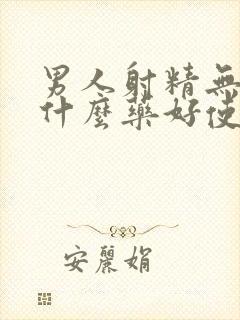 男人射精無
什麼藥好使
安麗娟